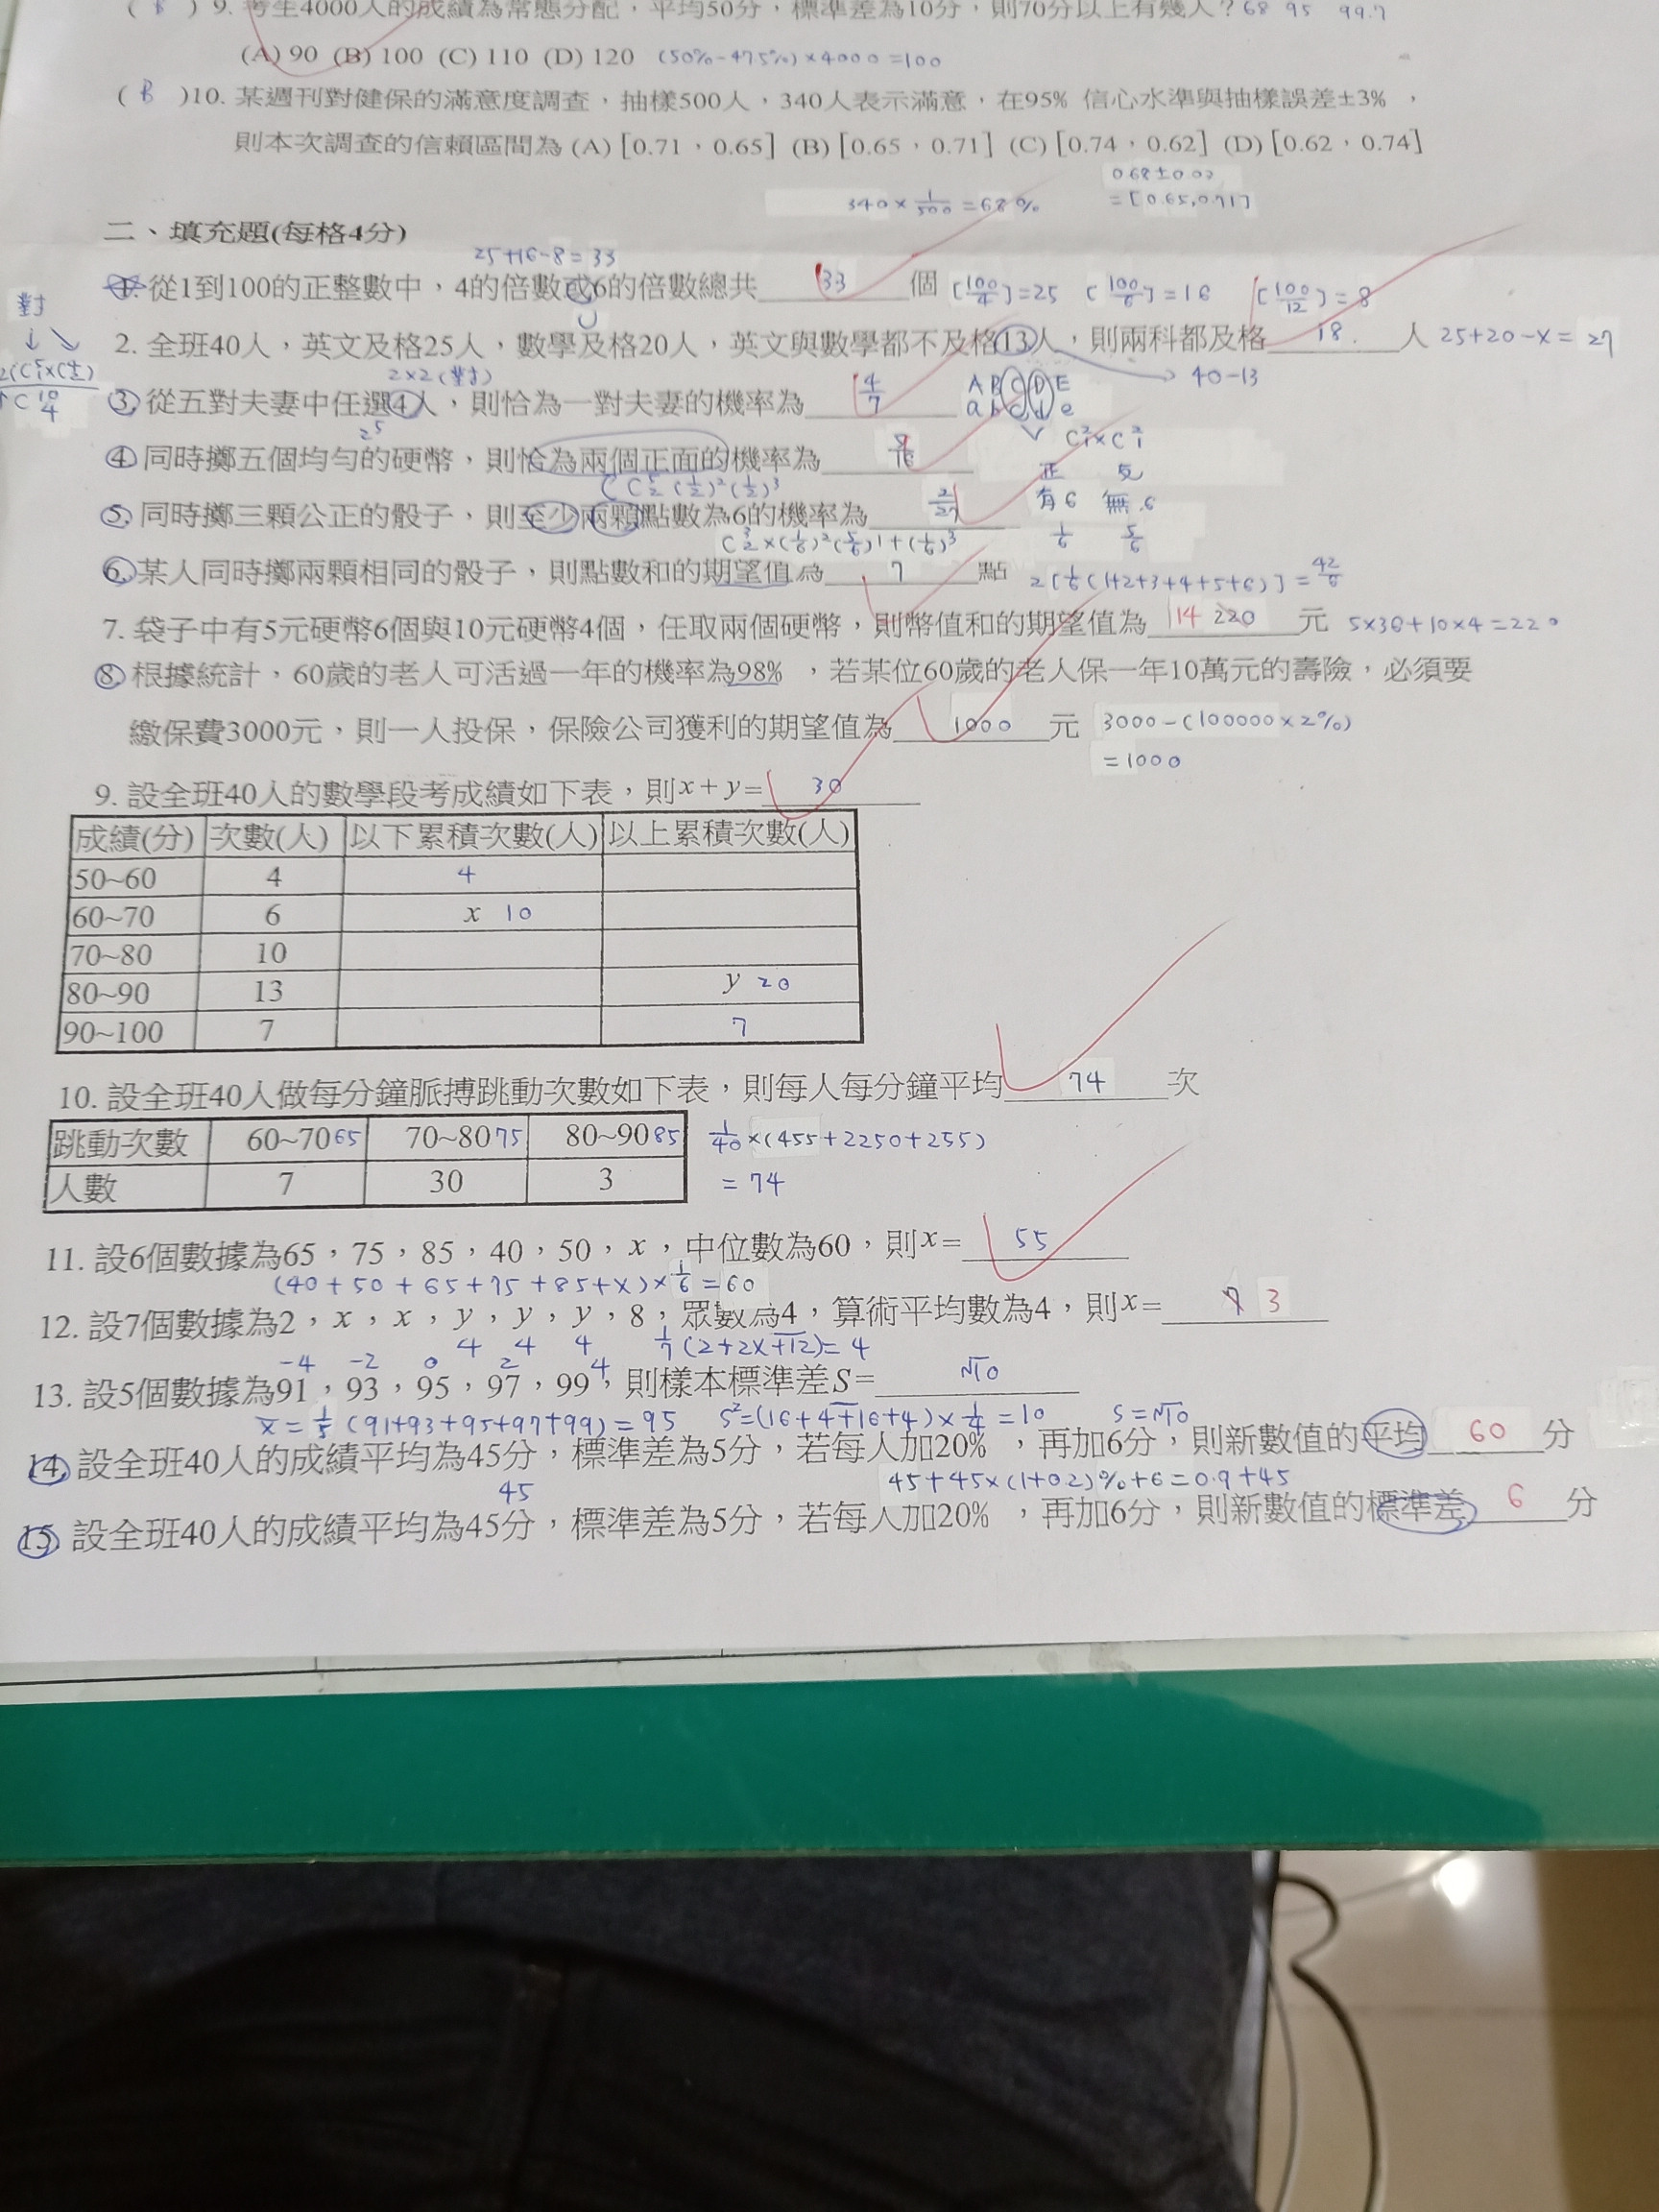 ( B ) 9. 考生4000人的成績為常態分配，平均50分，標準差為10分，則70分以上有幾人？ 68 95 99.7
(A) 90 (B) 100 (C) 110 (D) 120 (50%-47.5%)×4000=100
( B )10. 某週刊對健保的滿意度調查，抽樣500人，340人表示滿意，在95% 信心水準與抽樣誤差±3% ，
則本次調查的信賴區間為 (A) [0.71，0.65] (B) [0.65，0.71] (C) [0.74，0.62] (D) [0.62，0.74]
340×1/500=68% 0.68±0.03
=[0.65,0.71]
二、填充題(每格4分)
25+16-8=33
1. 從1到100的正整數中，4的倍數或6的倍數總共 33 個 [100/4]=25 [100/6]=16 [100/12]=8
對
2. 全班40人，英文及格25人，數學及格20人，英文與數學都不及格13人，則兩科都及格 18 人 25+20-x=27
2×2(對) 40-13
3. 從五對夫妻中任選4人，則恰為一對夫妻的機率為 4/7 A B C D E
a b c d e
2⁵ C²₁×C²₁
4. 同時擲五個均勻的硬幣，則恰為兩個正面的機率為 正 反
C⁵₂(1/2)²(1/2)³ 有6 無6
5. 同時擲三顆公正的骰子，則至少兩顆點數為6的機率為 2/27 1/6 5/6
C³₂×(1/6)²(5/6)¹+(1/6)³
6. 某人同時擲兩顆相同的骰子，則點數和的期望值為 7 點 2[1/6(1+2+3+4+5+6)]=42/6
7. 袋子中有5元硬幣6個與10元硬幣4個，任取兩個硬幣，則幣值和的期望值為 14 220 元 5×36+10×4=220
8. 根據統計，60歲的老人可活過一年的機率為98% ，若某位60歲的老人保一年10萬元的壽險，必須要
繳保費3000元，則一人投保，保險公司獲利的期望值為 1000 元 3000-(100000×2%)
=1000
9. 設全班40人的數學段考成績如下表，則x+y= 30
成績(分) 次數(人) 以下累積次數(人) 以上累積次數(人)
50~60 4 4
60~70 6 x 10
70~80 10
80~90 13 y 20
90~100 7 7
10. 設全班40人做每分鐘脈搏跳動次數如下表，則每人每分鐘平均 74 次
跳動次數 60~70 65 70~80 75 80~90 85 1/40×(455+2250+255)
人數 7 30 3 =74
11. 設6個數據為65，75，85，40，50，x，中位數為60，則x= 55
(40+50+65+75+85+x)×1/6=60
12. 設7個數據為2，x，x，y，y，y，8，眾數為4，算術平均數為4，則x= 7 3
4 4 4 1/7(2+2x+12)=4
-4 -2 0 2 4
13. 設5個數據為91，93，95，97，99，則樣本標準差S= √10
x̄=1/5(91+93+95+97+99)=95 S²=(16+4+16+4)×1/4=10 S=√10
14. 設全班40人的成績平均為45分，標準差為5分，若每人加20% ，再加6分，則新數值的平均 60 分
45 45+45×(1+0.2)%+6=0.9+45
15. 設全班40人的成績平均為45分，標準差為5分，若每人加20% ，再加6分，則新數值的標準差 6 分